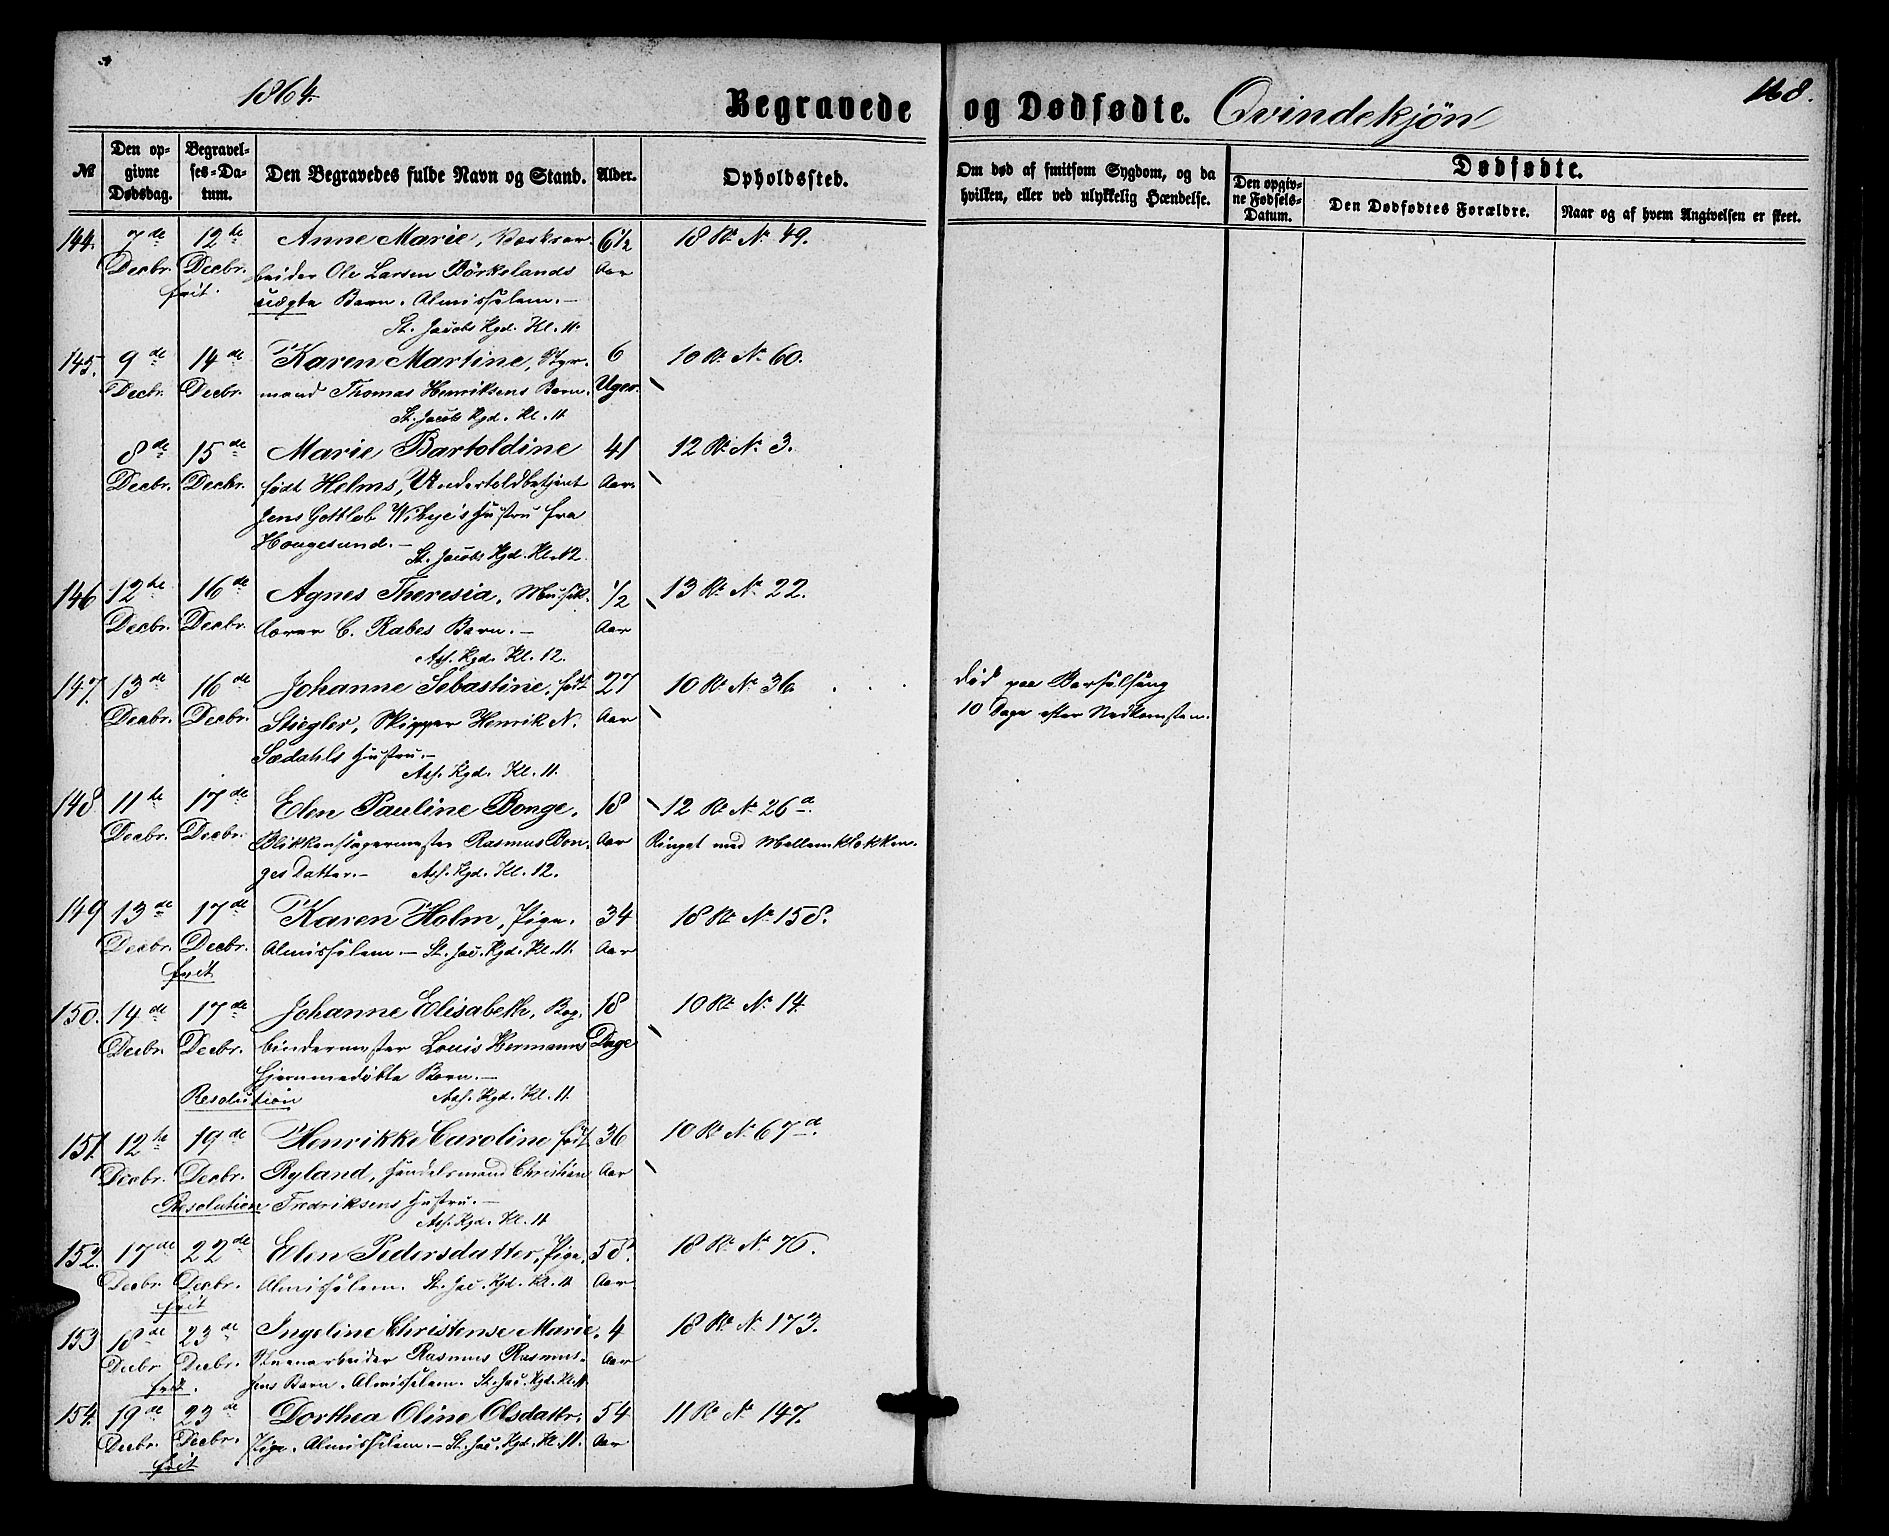 1864.
Begravede og Dødfødte. Qvindekjøn
168.
No
Den opgivne Dødsdag.
Begravelses-Datum.
Den Begravedes fulde Navn og Stand.
Alder.
Opholdssted.
Om død af smitsom Sygdom, og da hvilken, eller ved ulykkelig Hændelse.
Dødfødte.
Den opgivne Fødsels-Datum.
Den Dødfødtes Forældre.
Naar og af hvem Angivelsen er skeet.
144. 7de 12te Anne Marie, Værksar- 6½ 18 Rd. No 49.
Decbr. Decbr. beider Ole Larsen Börkelands Aar
frit. uægte Barn. Almisselem.-
St. Jacobs Kgd. Kl. 11.
145. 9de 14de Karen Martine, Styr- 6 10 Rd. No 60.
Decbr. Decbr. mand Thomas Henriksens Barn. Uger.
St. Jacobs Kgd. Kl. 11
8de 15de Marie Bartoldine 41 12 Rd. No 3.
Decbr. Decbr. født Helms, Undertoldbetjent Aar.
Jens Gottlob Wibye's Hustru fra
Hougesund.-
St. Jacobs Kgd. Kl. 12
146 12te 16de Agnes Theresia, Musik- ½ 13 Rd. No 22.
Decbr. Decbr. lærer C. Rabes Barn.- Aar
Ass. Kgd. Kl. 12.
147. 13de 16de Johanne Sebastine, født 27 10 Rd. No 36. død paa Barselseng
Decbr. Decbr. Stiegler, Skipper Henrik N. Aar 10 Dage efter Nedkomsten.
Sædahls Hustru.-
Ass. Kgd. Kl. 11.
148 11te 17de Elen Pauline Bonge, 18 12 Rd. No 26a.
Decbr. Decbr. Blikkenslagermester Rasmus Bon- Aar Ringet med Mellemklokken.
ges Datter.- Ass. Kgd. Kl. 12.
149 13de 17de Karen Holm, Pige. 34 18 Rd. No 158.
Decbr. Decbr. Almisselem.- St. Jac. Kgd. Kl. 11. Aar
frit
150. 14de 17de Johanne Elisabeth, Bog- 18 10 Rd. No 14
Decbr. Decbr. bindermester Louis Hermanns Dage
hjemmedøbte Barn.-
Resolution Ass. Kgd. Kl. 11.
151. 12te 19de Henrikke Caroline født 36 10 Rd. No 67d.
Decbr. Decbr. Ryland, Handelsmand Christian Aar
Resolution Fredriksens Hustru.-
Ass. Kgd. Kl. 11
152. 17de 22de Elen Pedersdatter, Pige, 58. 18 Rd. No 76.
Decbr. Decbr. Almisselem. St. Jac. Kgd. Kl. 11 Aar
frit
153 18de 23de Ingeline Christense Marie, 4 18 Rd. No 173.
Decbr Decbr. Stuenarbeider Rasmus Rasmus- Aar
frit. sens Barn. Almisselem. St. Jac. Kgd. Kl. 11
154. 19de 23de Dorthea Oline Olsdattr. 54 11 Rd. No 147.
Decbr. Decbr. Pige. Almisselem.- St. Jac. Kgd. Kl. 11. Aar
frit